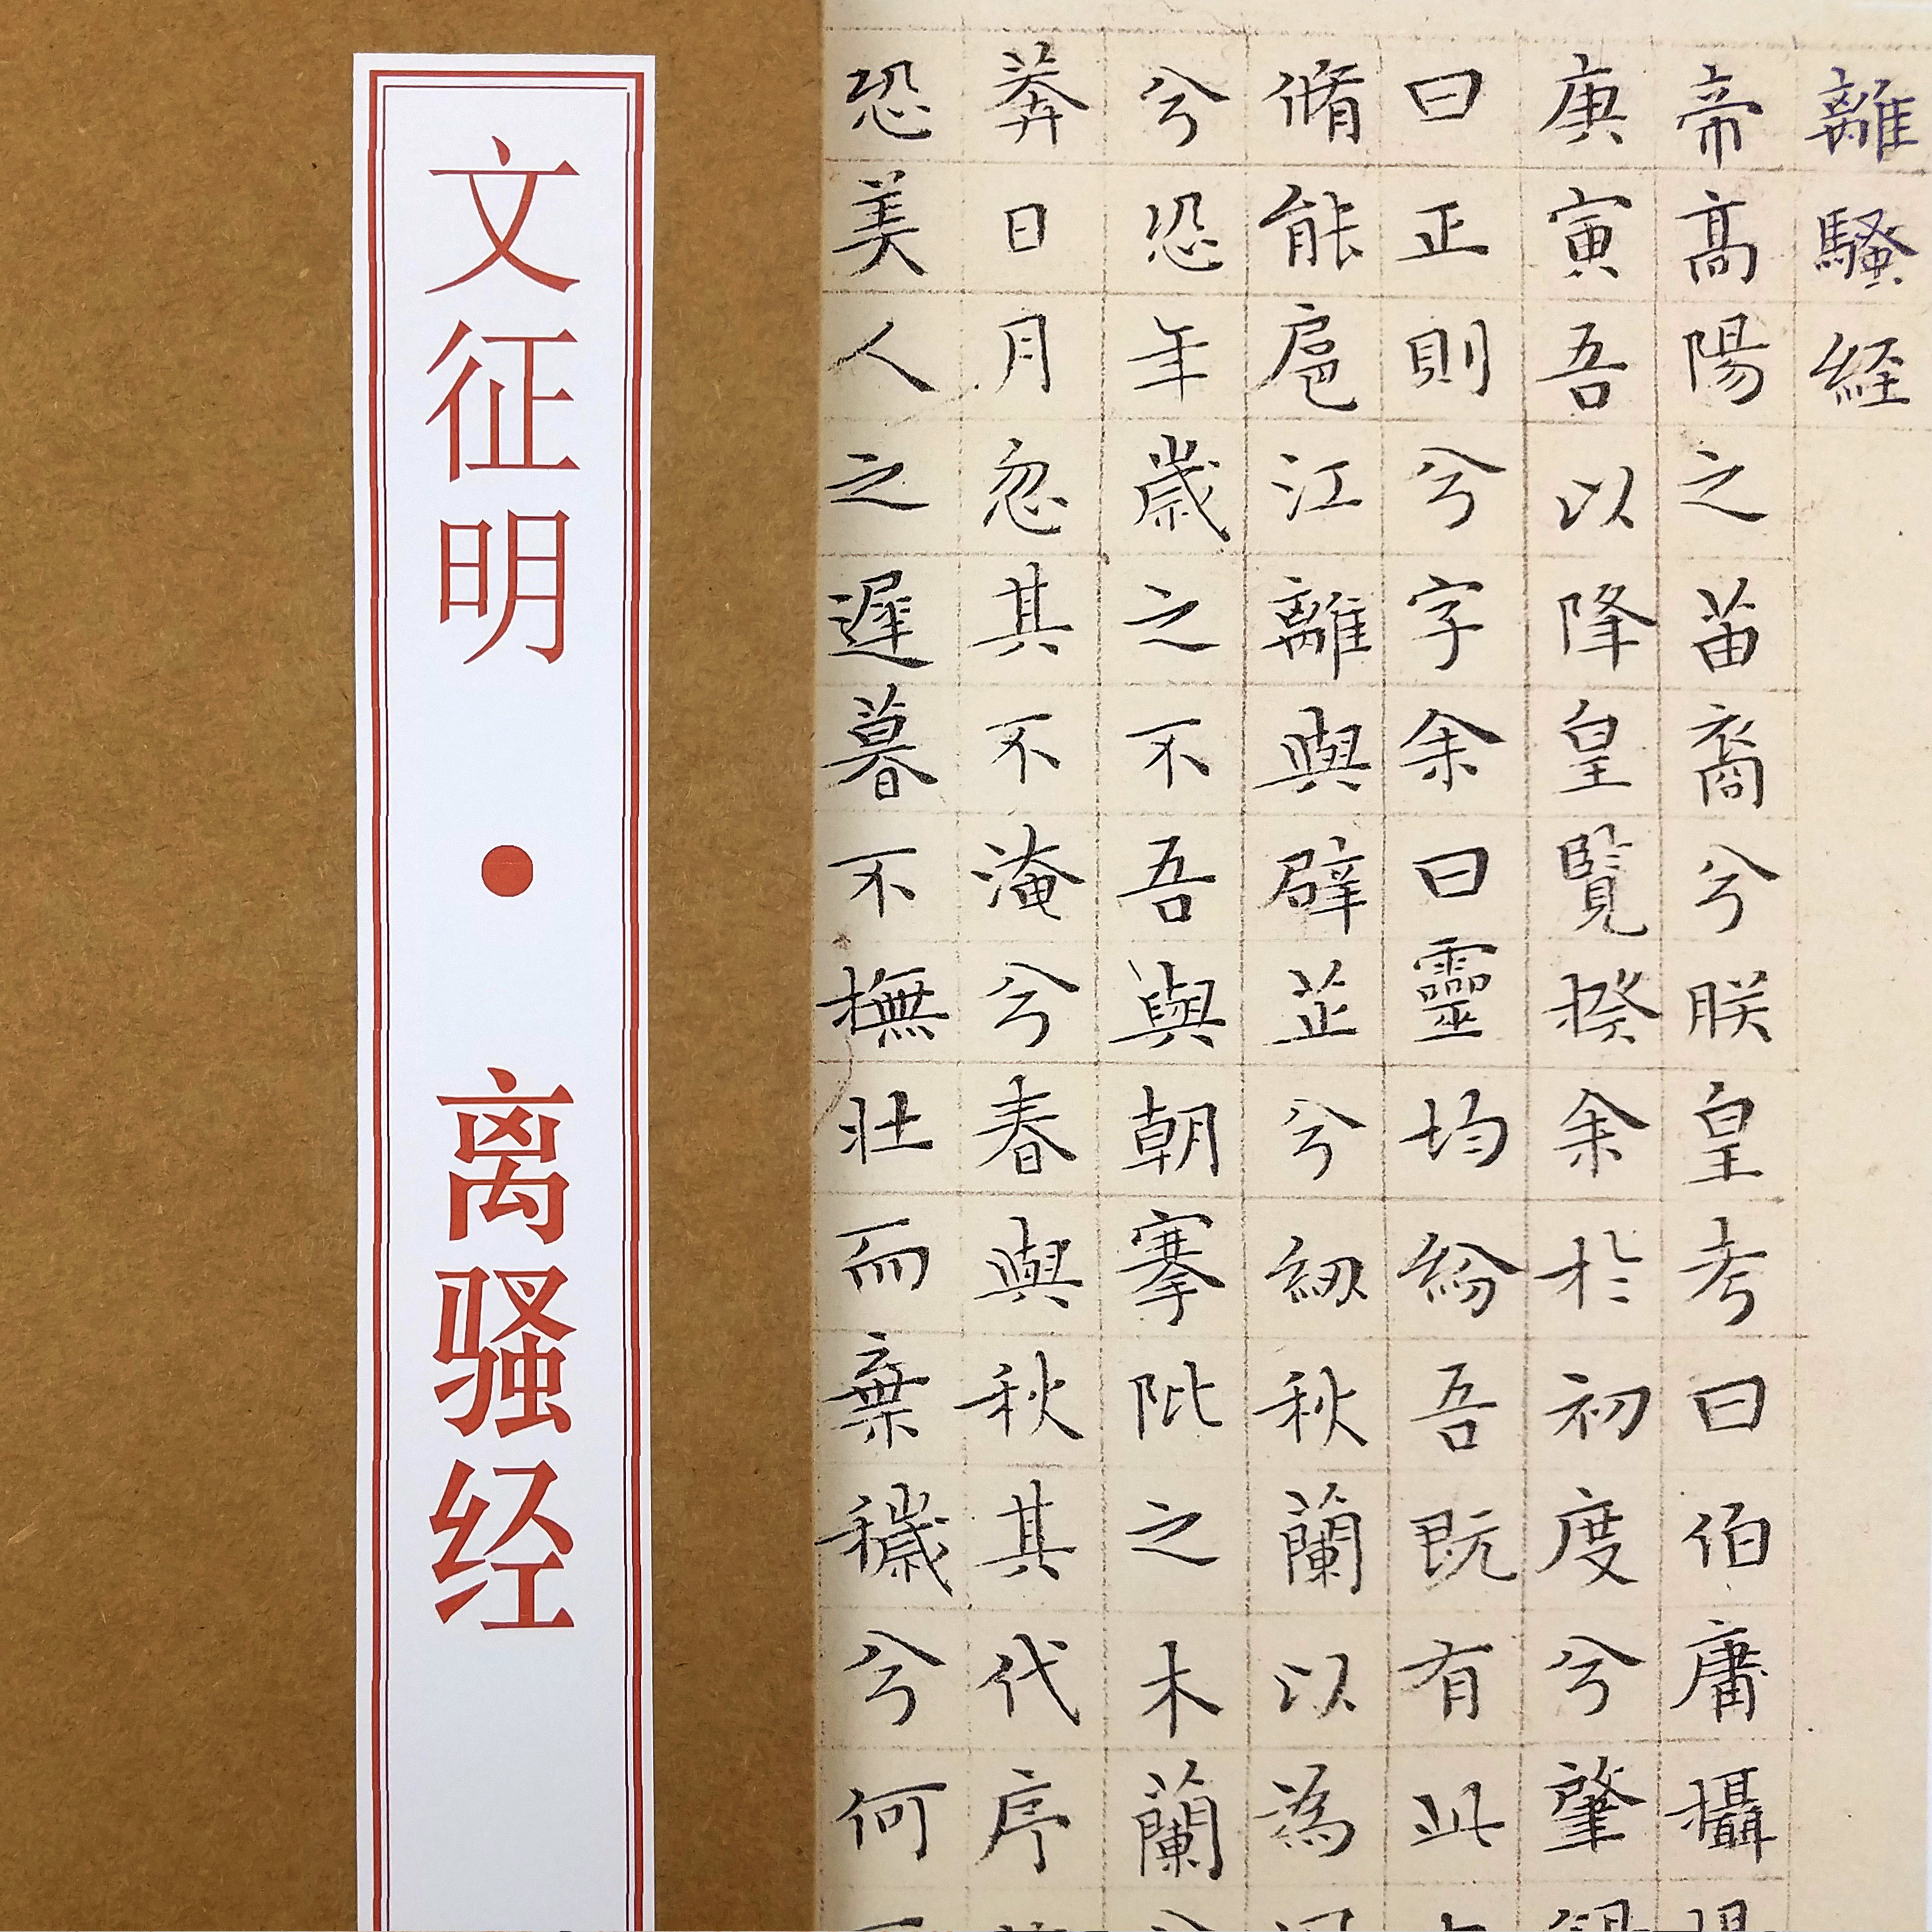 文征明 • 离骚经
離騷経
帝高陽之苗裔兮朕皇考曰伯庸攝
庚寅吾以降皇覽揆余於初度兮肇
曰正則兮字余曰靈均紛吾既有此
脩能扈江離與辟芷兮紉秋蘭以為
兮恐年歲之不吾與朝搴阰之木蘭
莽日月忽其不淹兮春與秋其代序
恐美人之遲暮不撫壯而棄穢兮何